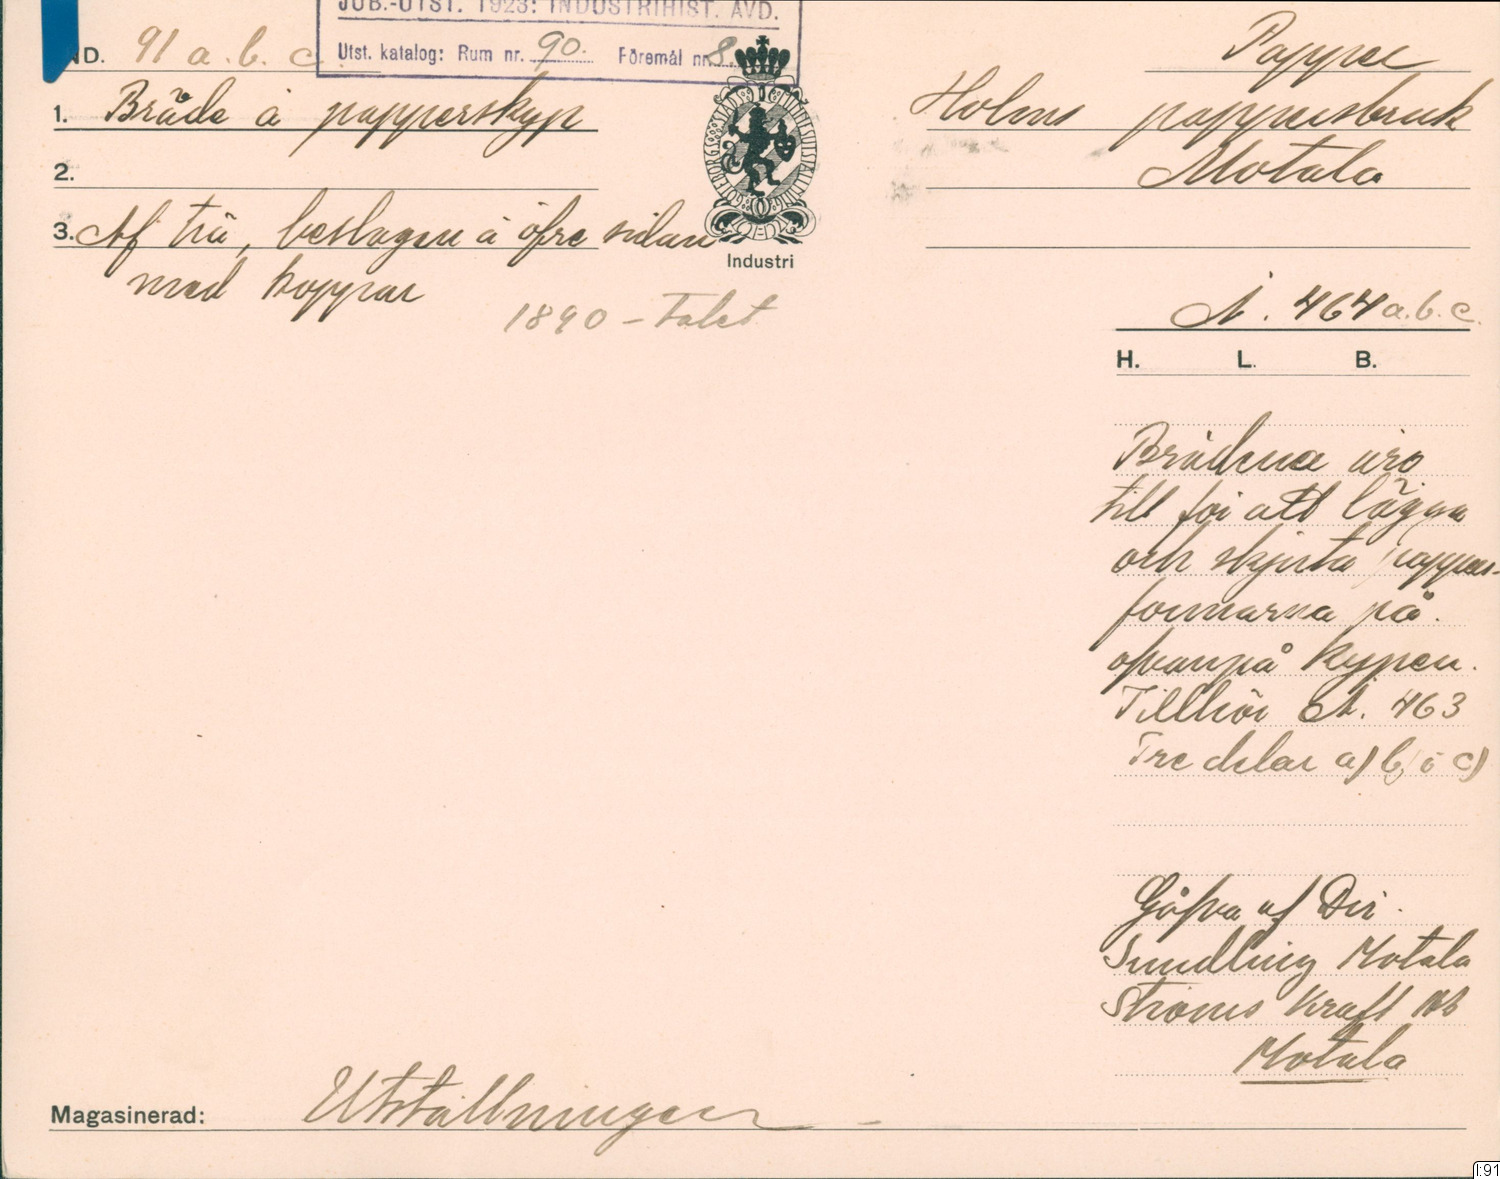 JUB.-UTST. 1923: INDUSTRIHIST. AVD.
Utst. katalog: Rum nr. 90. Föremål nr. 8.
ND. 91 a. b. c.
Papper
1. Bräde å papperskyp
Holms pappersbruk
2.
Motala
3. Af trä, beslagen å öfre sidan
med koppar
1890 - talet
GÖTEBORGS STADS
Industri
A. 464 a. b. c.
H. L. B.
Brädena äro
till för att lägga
och skjuta pappers-
formarna på
ofvanpå kypen.
Tillhör A. 463
Tre delar a) b) o c)
Gåfva af Dir.
Sundling Motala
Ströms Kraft AB
Motala
Magasinerad: Utställningen -
I:91